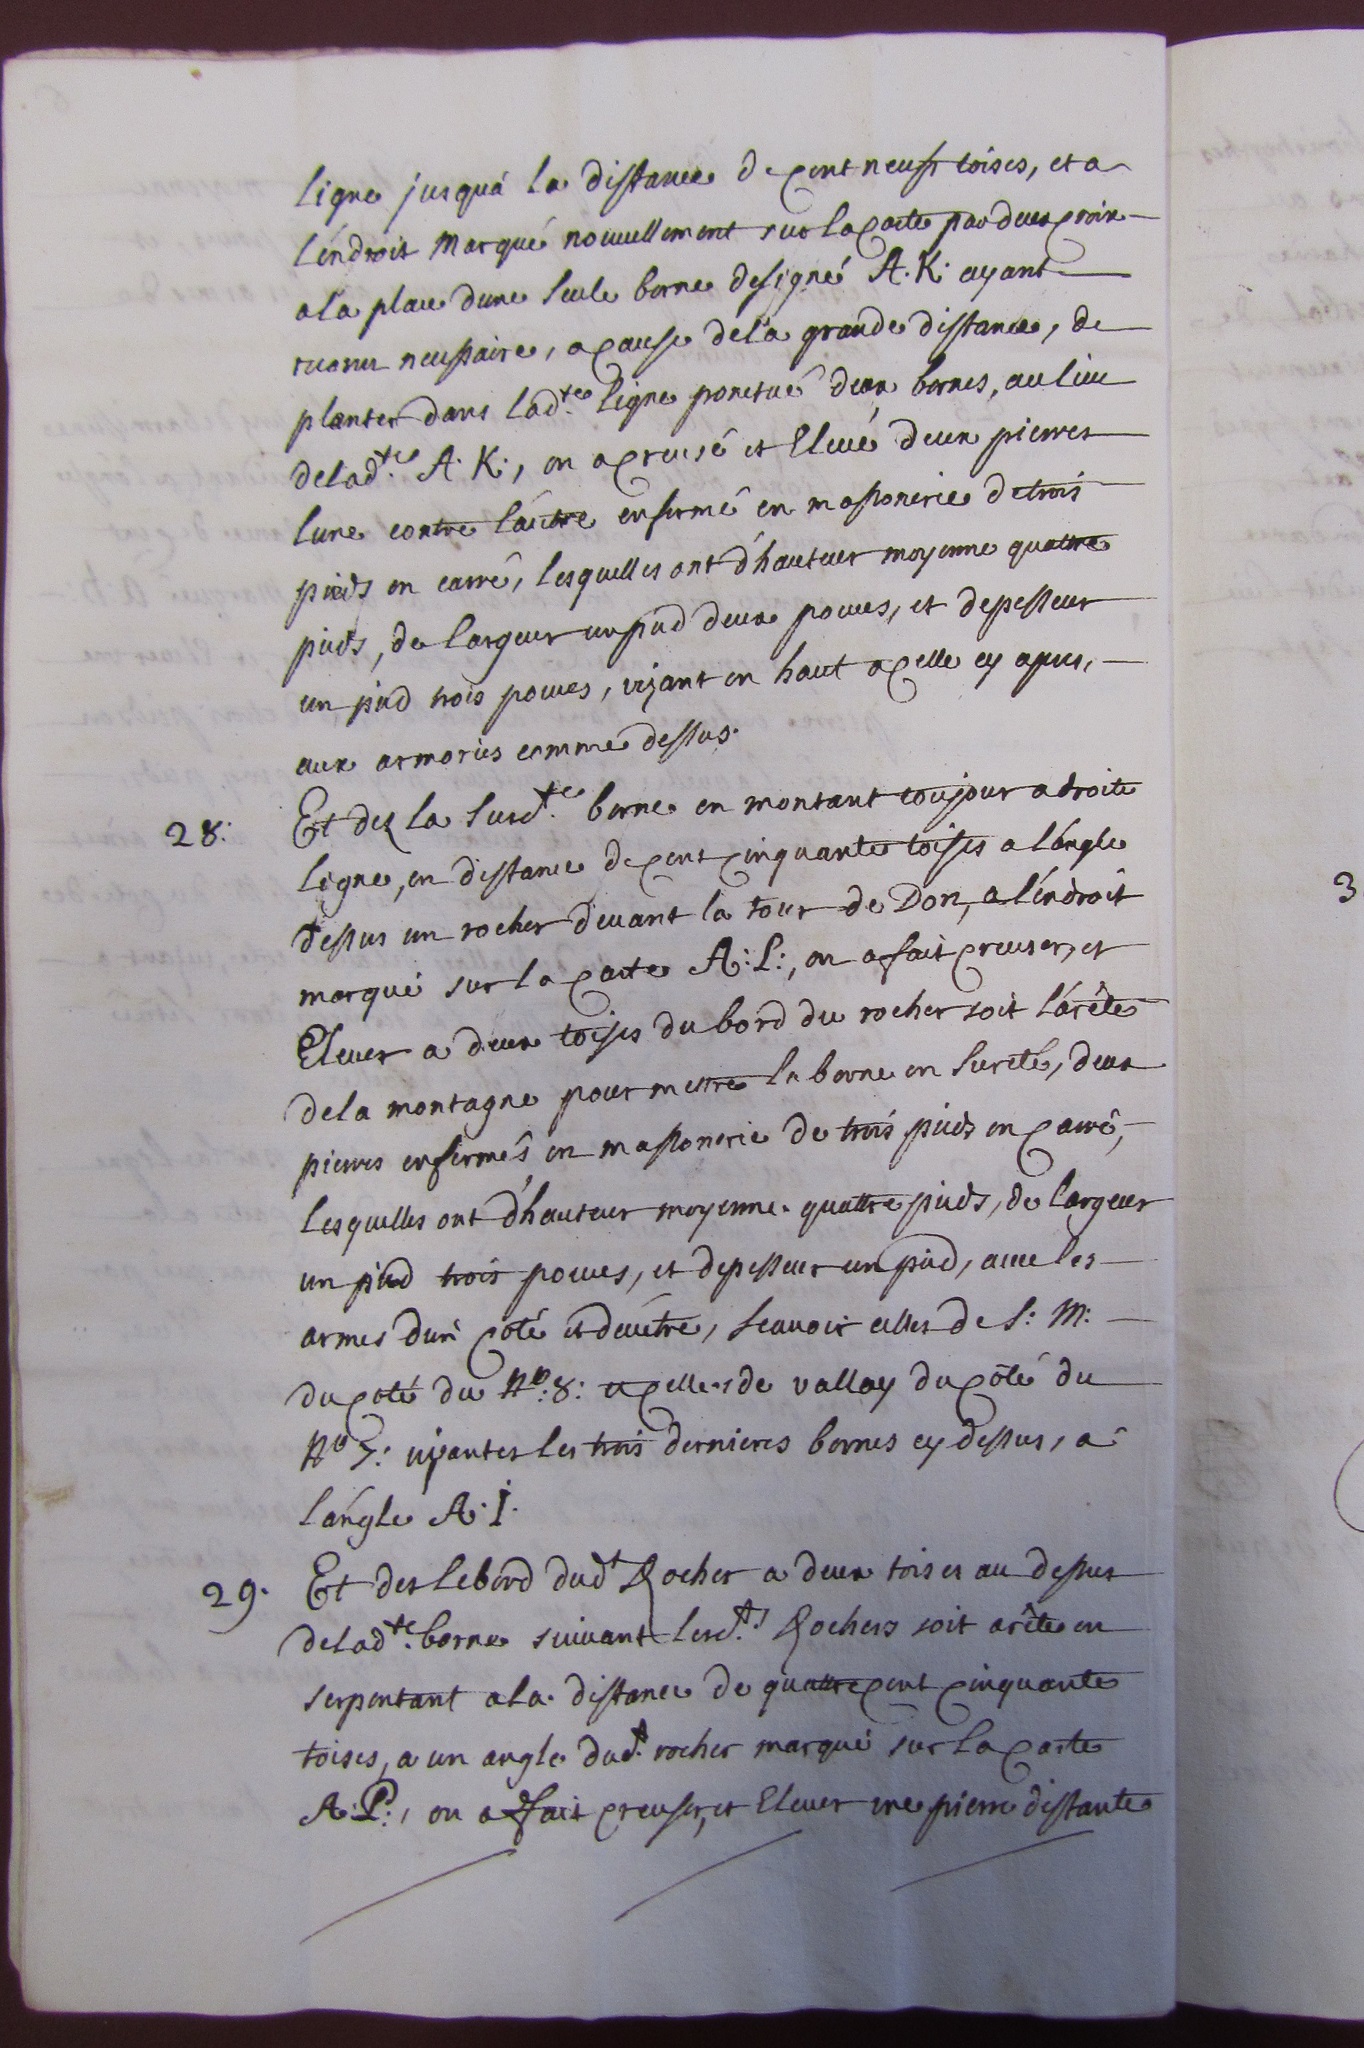 ligne jusquá la distance de cent neuf toises, et a
léndroit Marqué nouvellement sur la carte par deux croix
a la place dune seule borne designé A. K: ayant
reconnu necessaire, a cause de la grande distance, de
planter dans lad.te ligne ponctué deux bornes, au lieu
de lad.te A. K:, on a creusé et Elevé deux pierres
lune contre láutre enfermé en massonerie de trois
pieds en carré, lesquelles ont d'hauteur moyenne quattre
pieds, de largeur un pied deux pouces, et depesseur
un pied trois pouces, vizant en haut a celle cy apres,
aux armories comme dessus.
28: Et dez la susd.te borne en montant toujour a droite
ligne, en distance de cent cinquante toises a lángle
dessus un rocher devant la tour de Don, a léndroit
marqué sur la carte A: L:, on a fait creuser, et
Elever a deux toises du bord du rocher soit lárête
de la montagne pour mettre la borne en sureté, deux
pierres enfermés en massonerie de trois pieds en carré,
lesquelles ont d'hauteur moyenne quattre pieds, de largeur
un pied trois pouces, et depesseur un pied, avec les
armes dun coté et deautre, scavoir celles de S: M:
du coté du N.o 8: et celles de vallay du côté du
N.o 7: vizantes les trois dernieres bornes cy dessus, a
lángle A. I.
29. Et des le bord dud.t Rocher a deux toises au dessus
de lad.te borne suivant lesd.ts Rochers soit arête en
serpentant a la distance de quattre cent cinquante
toises, a un angle dud.t rocher marqué sur la carte
A. P:, on a fait creuser, et Elever une pierre distante
3